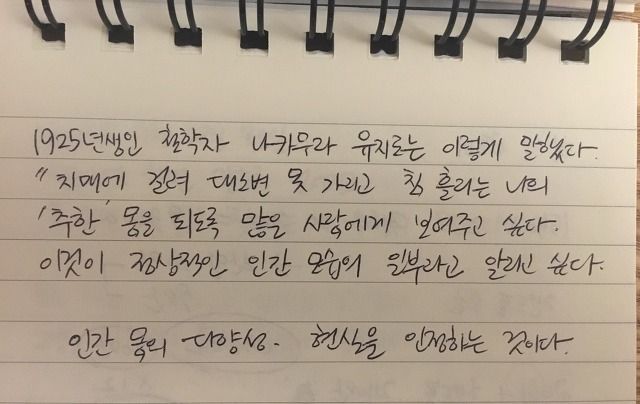 1925년생인 철학자 나카무라 유지로는 이렇게 말했다.
"치매에 걸려 대소변 못 가리고 침 흘리는 나의
'추한' 몸을 되도록 많은 사람에게 보여주고 싶다.
이것이 정상적인 인간 모습의 일부라고 알리고 싶다.
인간 몸의 다양성. 현실을 인정하는 것이다.